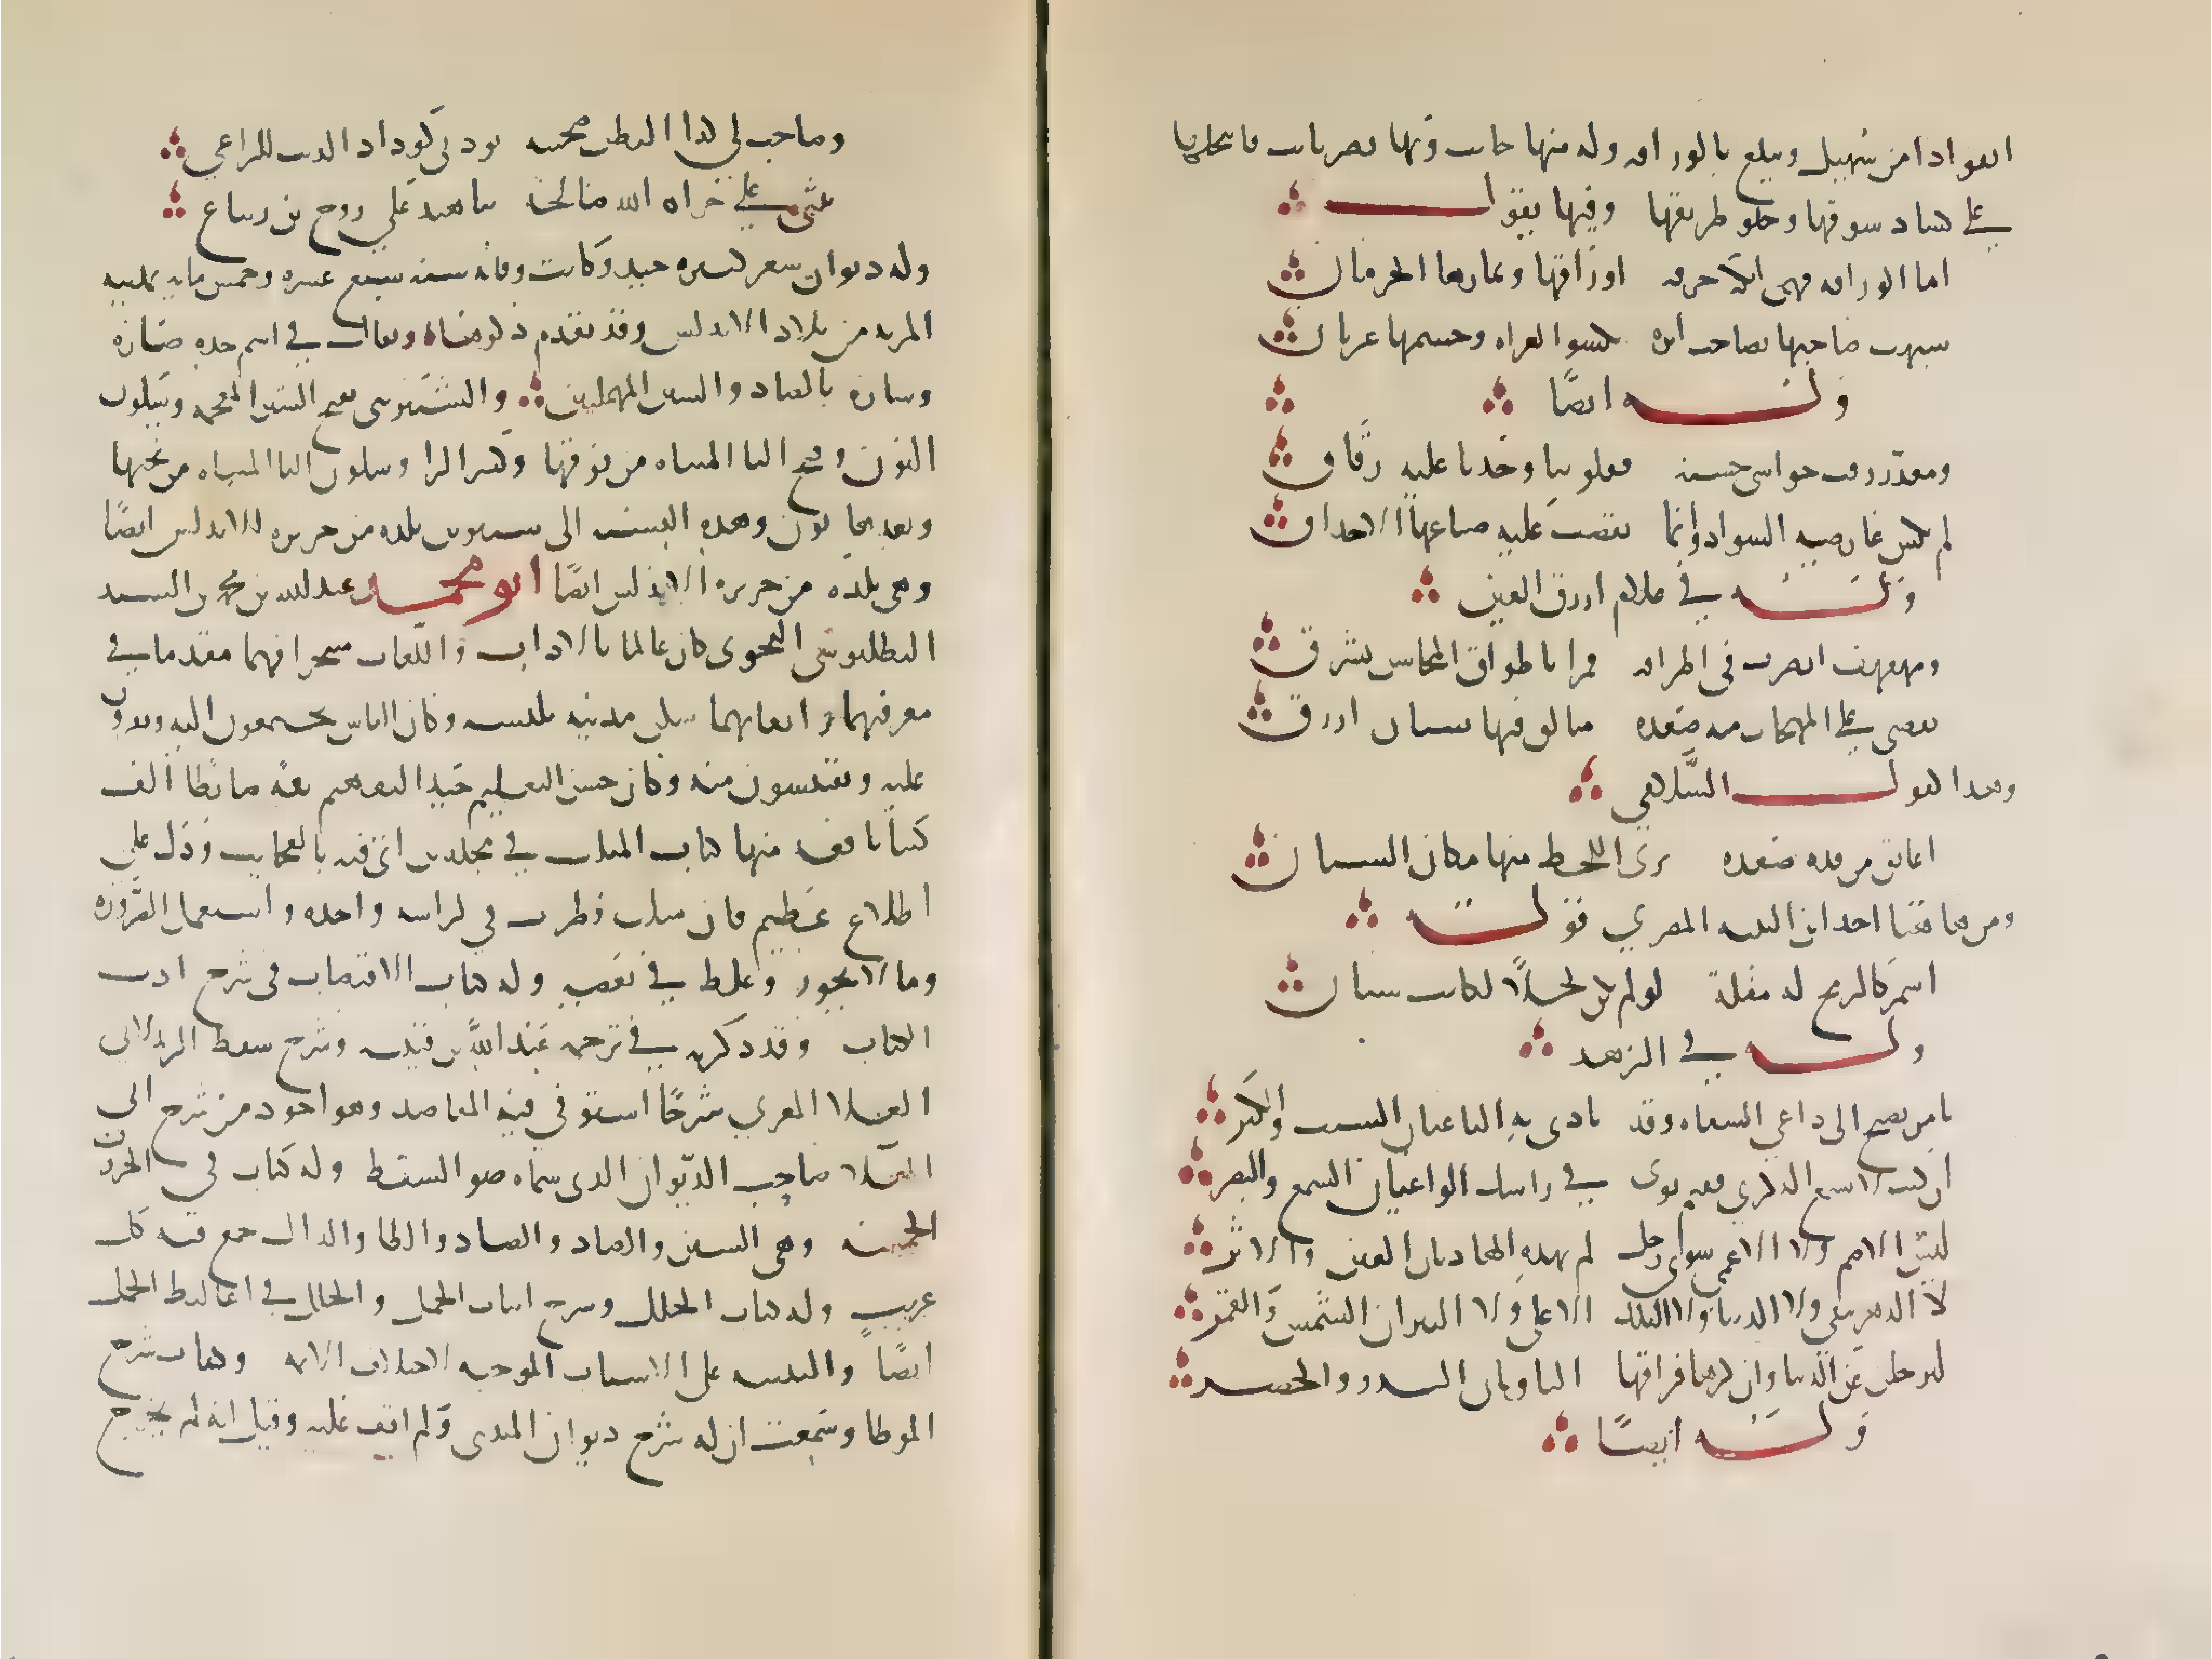 انفرادا من سهيل وتبلغ بالوراقه وله منها جانب وبها بصر ثاقب فانتحلها
على كساد سوقها وخلو طريقها وفيها يقول
اما الوراقه فهى انكد حرفه اوراقها وثمارها الحرمان
شبهت صاحبها بصاحب ابره تكسو العراه وجسمها عريان
وله ايضًا
ومعذر رقت حواشى حسنه فقلوبنا وجدا عليه رقاق
لم يكس عارضيه السواد وانما نفضت عليه صباغها الاحداق
وله في غلام ازرق العين
ومهفهف ابصرت فى اطرافه قمرا باطواق المحاسن يشرق
تقضى على المهجات منه صعده متالق فيها سنان ازرق
وهذا كقول السلامي
اعانق من قده صعده ترى اللحظ منها مكان السنان
ومن هاهنا اخذ ابن النبيه المصري قوله
اسمر كالرمح له مقلة لو لم تكن كحلًا لكانت سنان
وله في الزهد
يا من يصيخ الى داعي السفاه وقد نادى به الناعيان الشيب والكبر
ان كنت لا تسمع الذكرى ففيم ثوى في راسك الواعيان السمع والبصر
ليس الاصم ولا الاعمى سوى رجل لم يهده الهاديان العين والاثر
لا الدهر يبقى ولا الدنيا ولا الفلك الاعلى ولا النيران الشمس والقمر
ليرحلن عن الدنيا وان كرها فراقها الثاويان البدو والحضر
وله ايضًا
وصاحب لي كداء البطن صحبته يودني كوداد الذيب للراعي
يثنى علي جزاه الله صالحة ثنا هند على روح بن زنباع
وله ديوان شعر اكثره جيد وكانت وفاته سنه سبع عشره وخمس مايه بمدينه
المريه من بلاد الاندلس وقد تقدم ذكرها ويقال في اسم جده صاره
وساره بالصاد والسين المهملتين والشنتريني بفتح الشين المعجمه وسكون
النون وفتح التا المثناه من فوقها وكسر الرا وسكون اليا المثناه من تحتها
وبعدها نون وهذه النسبه الى شنترين بلده من جزيره الاندلس ايضًا
وهى بلده من جزيره الاندلس ايضًا ابو محمد عبد الله بن محمد بن السيد
البطليوسى النحوى كان عالما بالاداب واللغات متبحرا فيهما مقدما في
معرفتهما واتقانهما سكن مدينه بلنسيه وكان الناس يجتمعون اليه ويقرون
عليه ويقتبسون منه وكان حسن التعليم جيد التفهيم ثقه ضابطا الف
كتبا نافعه منها كتاب المثلث في مجلدين اتى فيه بالعجايب ودل على
اطلاع عظيم فان مثلث قطرب في كراسه واحده واستعمل الضروره
وما لا يجوز وغلط في بعضه وله كتاب الاقتضاب فى شرح ادب
الكتاب وقد ذكرته في ترجمه عبد الله بن قتيبه وشرح سقط الزند لابى
العلا المعري شرحًا استوفى فيه المقاصد وهو اجود من شرح ابى
العلا صاحب الديوان الذى سماه ضو السقط وله كتاب في الحروف
الخمسه وهى السين والصاد والضاد والطا والدال جمع فيه كل
غريب وله كتاب الحلل وشرح ابيات الجمل والخلل في اغاليط الجمل
ايضًا والتنبيه على الاسباب الموجبه لاختلاف الامه وكتاب شرح
الموطا وسمعت ان له شرح ديوان المتنبى ولم اقف عليه وقيل انه لم يخرج